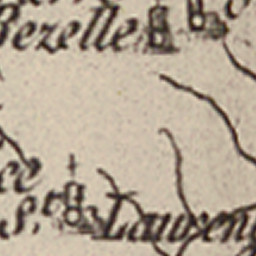 Bezelle
ce
S.t Lauren